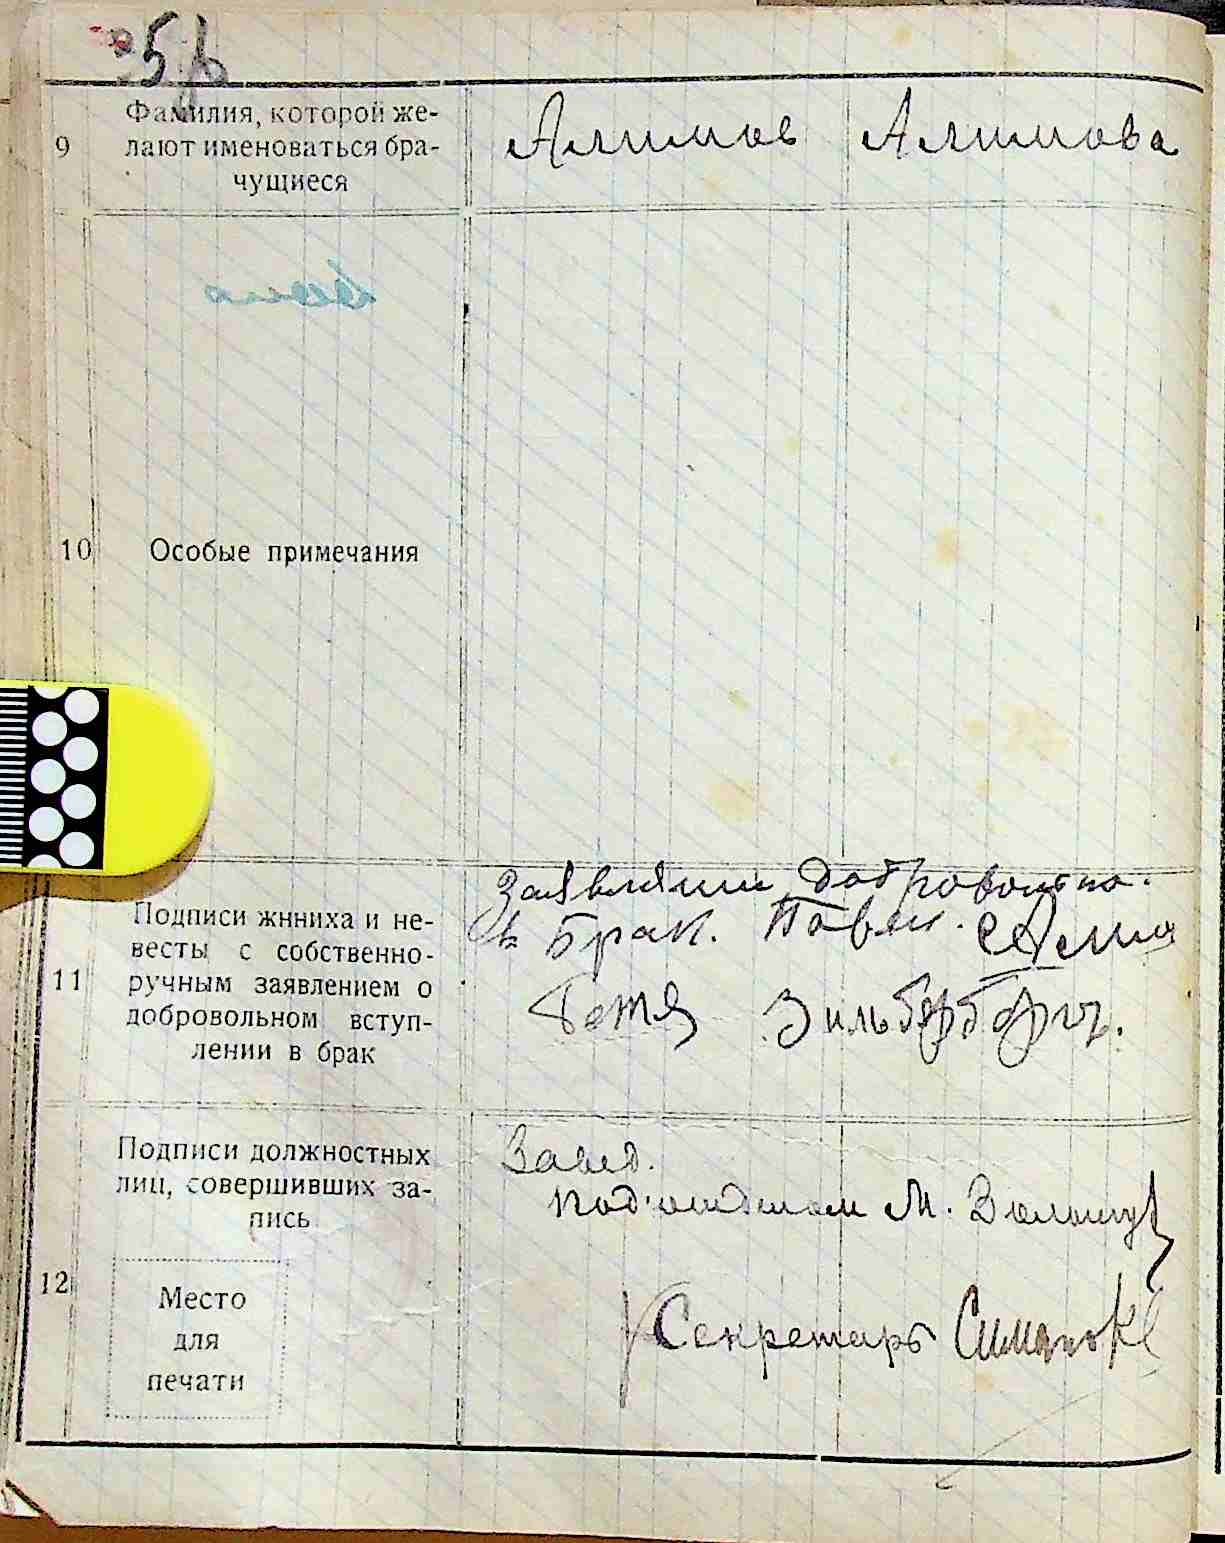 9
Фамилия, которой же-
лают именоваться бра-
чущиеся
Алимов
Алимова
10
Особые примечания
11
Подписи жнниха и не-
весты с собственно-
ручным заявлением о
добровольном вступ-
лении в брак
Заявляем добровольно
в Брак.
Зильберберг
12
Подписи должностных
лиц, совершивших за-
пись
Место
для
печати
Завед.
М.
Секретарь